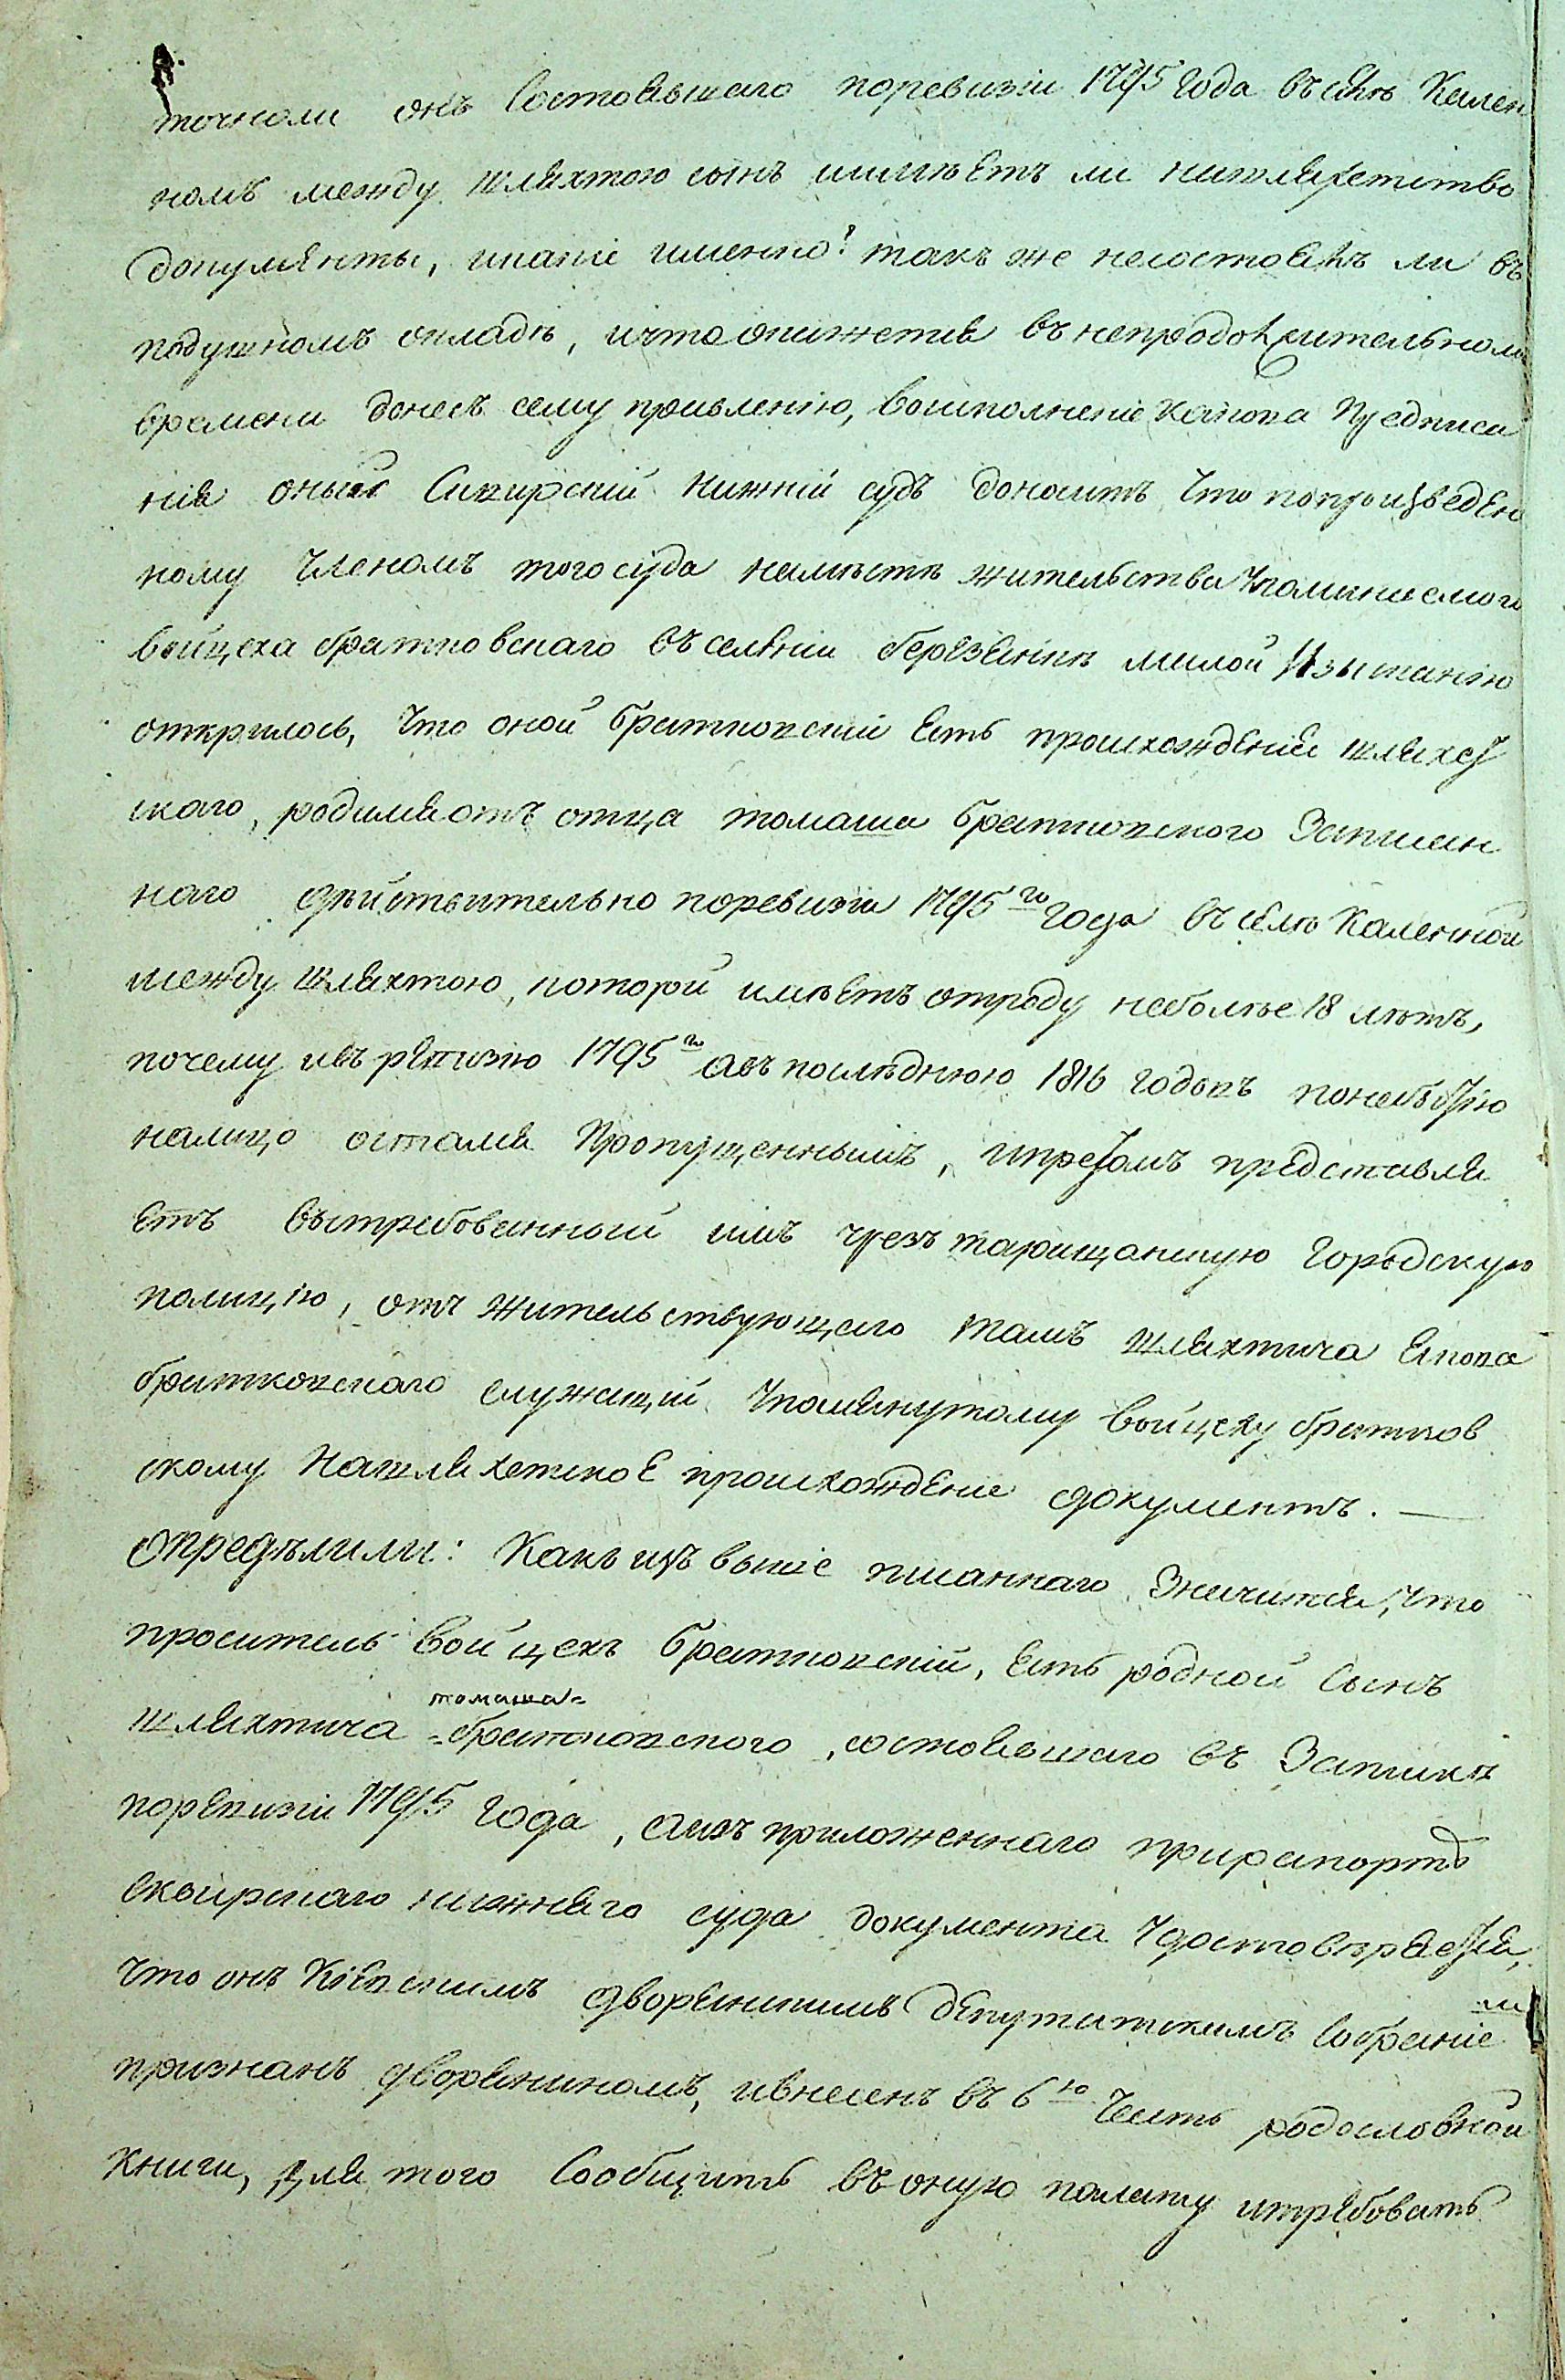 точноли онъ Состоявшаго поревизіи 1795 года въ селѣ Кален
номъ между шляхтою сынъ иимѣетъ ли нашляхетство
документы, икакіе именно? такъ же несостоитъ ли въ
подушномъ окладѣ, ичто окажется въ непродолжительномъ
времени донесть сему правленію, воисполненіе какова предписа
нія оный Сквирскій Нижній судъ доноситъ что попроизведен
ному Членомъ того суда намѣстѣ жительства упоминаемого
войцеха братковскаго въ селеніи березянкѣ малой Изысканію
открилось, что оной братковскій есть происхожденія шляхет
скаго, родился отъ отца томаша братковского Записан
наго дѣйствительно поревизіи 1795го года въ селѣ Каленной
между шляхтою, которой имѣетъ отроду неболѣе 18 лѣтъ,
почему ивъ ревизію 1795го авъ послѣднюю 1816 годовъ понебытію
налицо остался пропущеннымъ, ипрезомъ представля
етъ вытребованный имъ чрезъ таращанскую городскую
полицію, отъ жительствующаго тамъ шляхтича Якова
братковскаго служащій упомянутому войцеху братков
скому Нашляхетское происхожденіе документъ. —
Опредѣлили: Какъ изъ выше писаннаго Значится, что
проситель войцехъ братковскій, есть родной сынъ
шляхтича томаша братковского, состоявшаго въ Запискѣ
поревизіи 1795 года, аизъ приложеннаго прирапортѣ
сквирскаго нижняго суда документа удостовѣряется,
что онъ Кіевскимъ дворянскимъ депутатскимъ Собраніемъ
признанъ дворяниномъ, ивнесенъ въ 6ю Часть родословной
книги, для того Сообщить въ оную палату итребовать